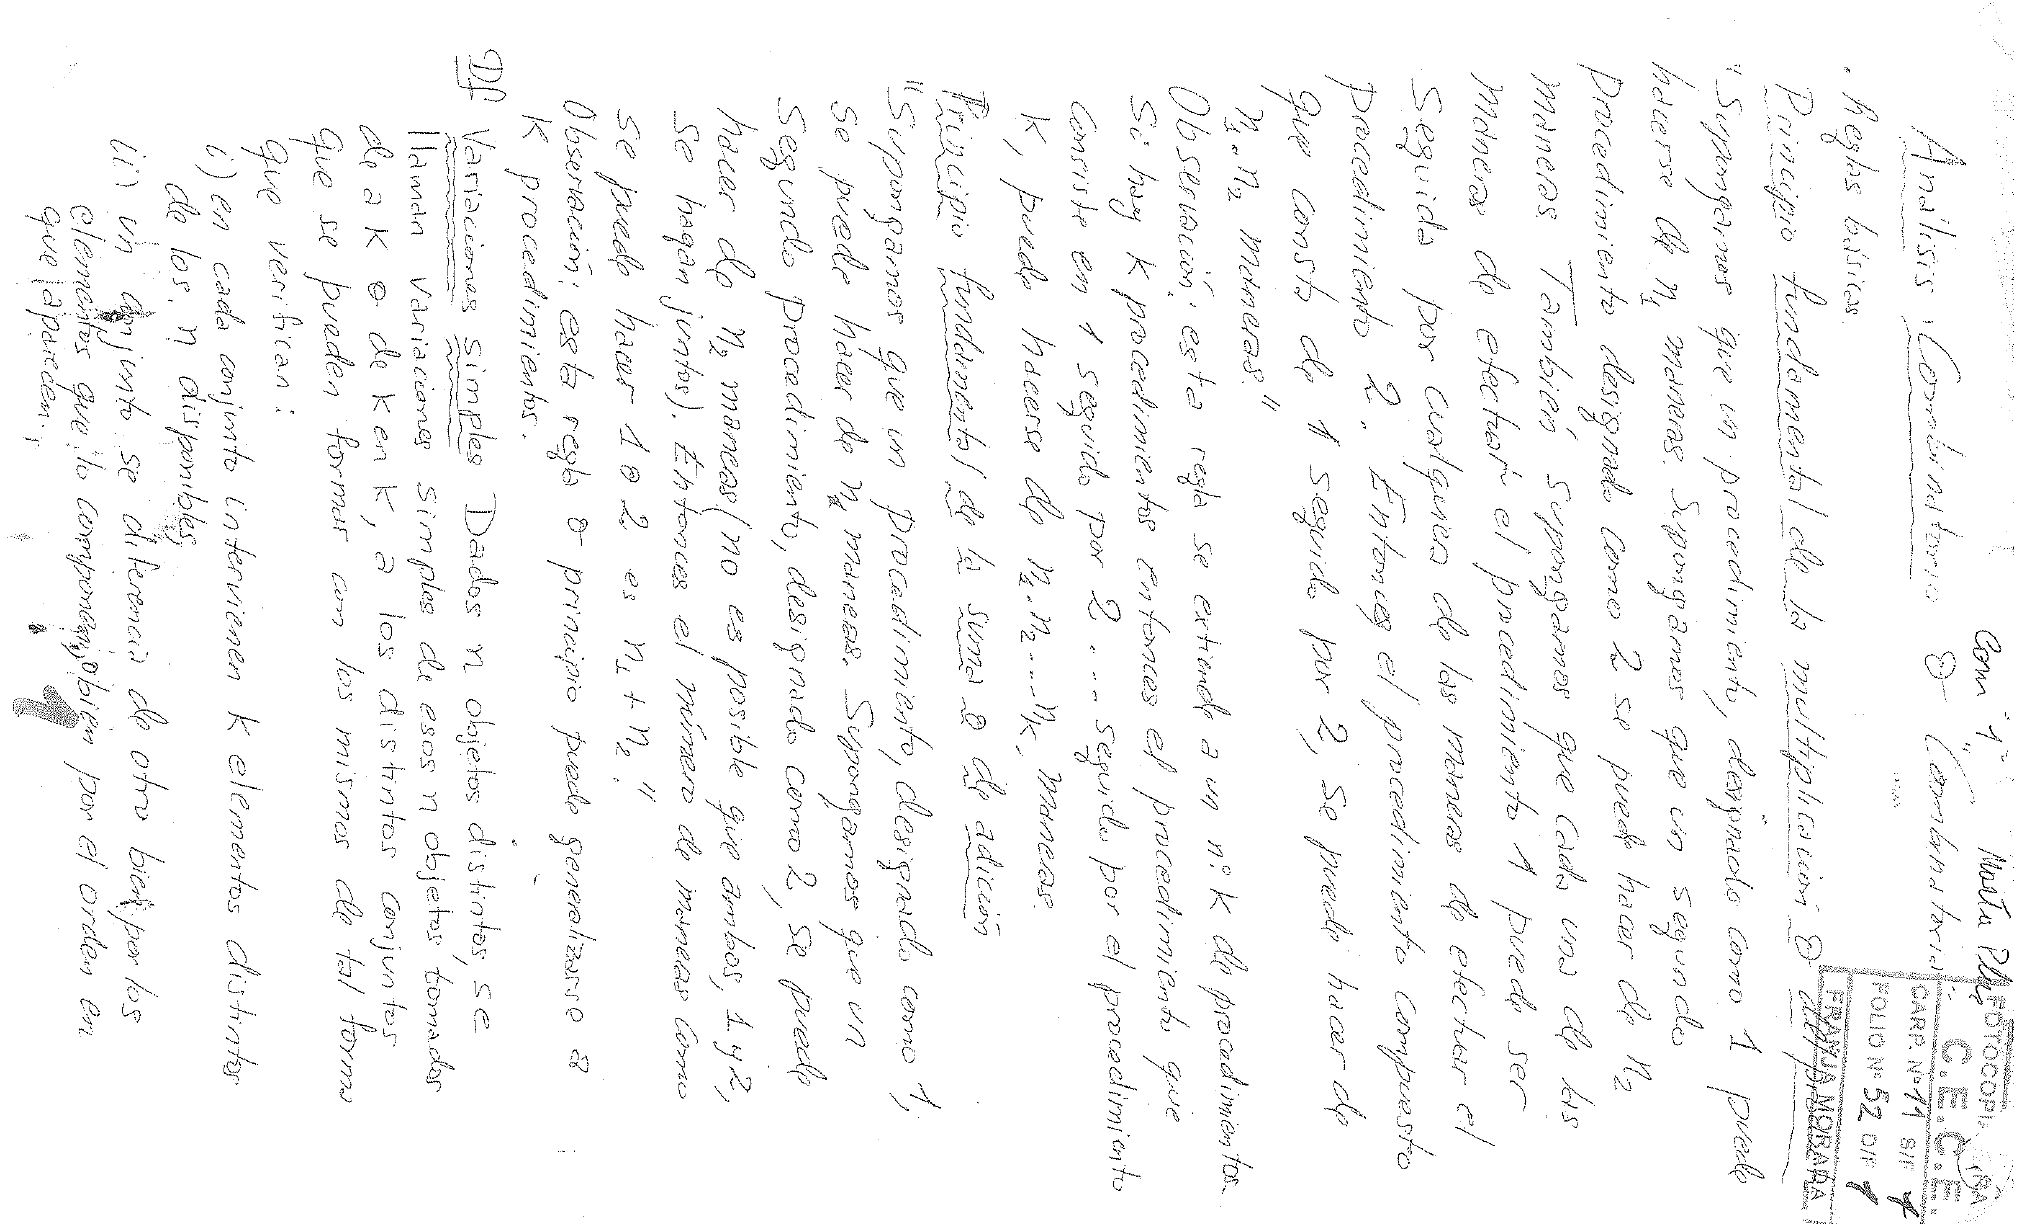 Com "1"
FOTOCOPI
C.E.C.E.
CARP. Nº 11 S/F 1
FOLIO Nº 52 D/F 1
FRANJA MORADA
Análisis Combinatorio o Combinatoria
. Reglas básicas
Principio fundamental de la multiplicación o del producto
"Supongamos que un procedimiento, designado como 1 puede
hacerse de n1 maneras. Supongamos que un segundo
procedimiento designado como 2 se puede hacer de n2
maneras También, supongamos que cada una de las
maneras de efectuar el procedimiento 1 puede ser
seguida por cualquiera de las maneras de efectuar el
procedimiento 2. Entonces el procedimiento compuesto
que consta de 1 seguido por 2, se puede hacer de
n1.n2 maneras."
Observación: esta regla se extiende a un nº k de procedimientos
Si hay k procedimientos entonces el procedimiento que
consiste en 1 seguido por 2 ... seguido por el procedimiento
k, puede hacerse de n1.n2....nk, maneras.
Principio fundamental de la suma o de adición
"Supongamos que un procedimiento, designado como 1,
se puede hacer de n1 maneras. Supongamos que un
segundo procedimiento, designado como 2, se puede
hacer de n2 maneras (no es posible que ambos, 1 y 2,
se hagan juntos). Entonces el número de maneras como
se puede hacer 1 o 2 es n1 + n2."
Observación: esta regla o principio puede generalizarse a
k procedimientos.
Df Variaciones simples Dados n objetos distintos, se
llaman variaciones simples de esos n objetos tomados
de a k o de k en k, a los distintos conjuntos
que se pueden formar con los mismos de tal forma
que verifican:
i) en cada conjunto intervienen k elementos distintos
de los n disponibles
ii) un conjunto se diferencia de otro bien por los
elementos que lo componen, o bien por el orden en
que aparecen.
1